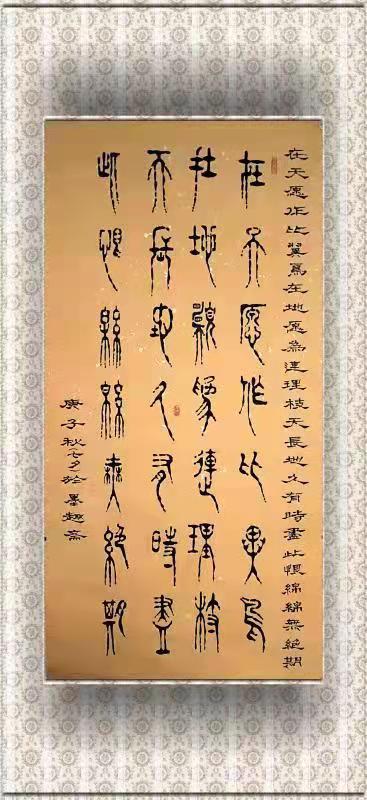 在天愿作比翼鳥在地愿為連理枝天長地久有時盡此恨綿綿無絕期
在天愿作比翼鳥
在地願為連理枝
天長地久有時盡
此恨緜緜無絕期
庚子秋七夕於墨趣斋